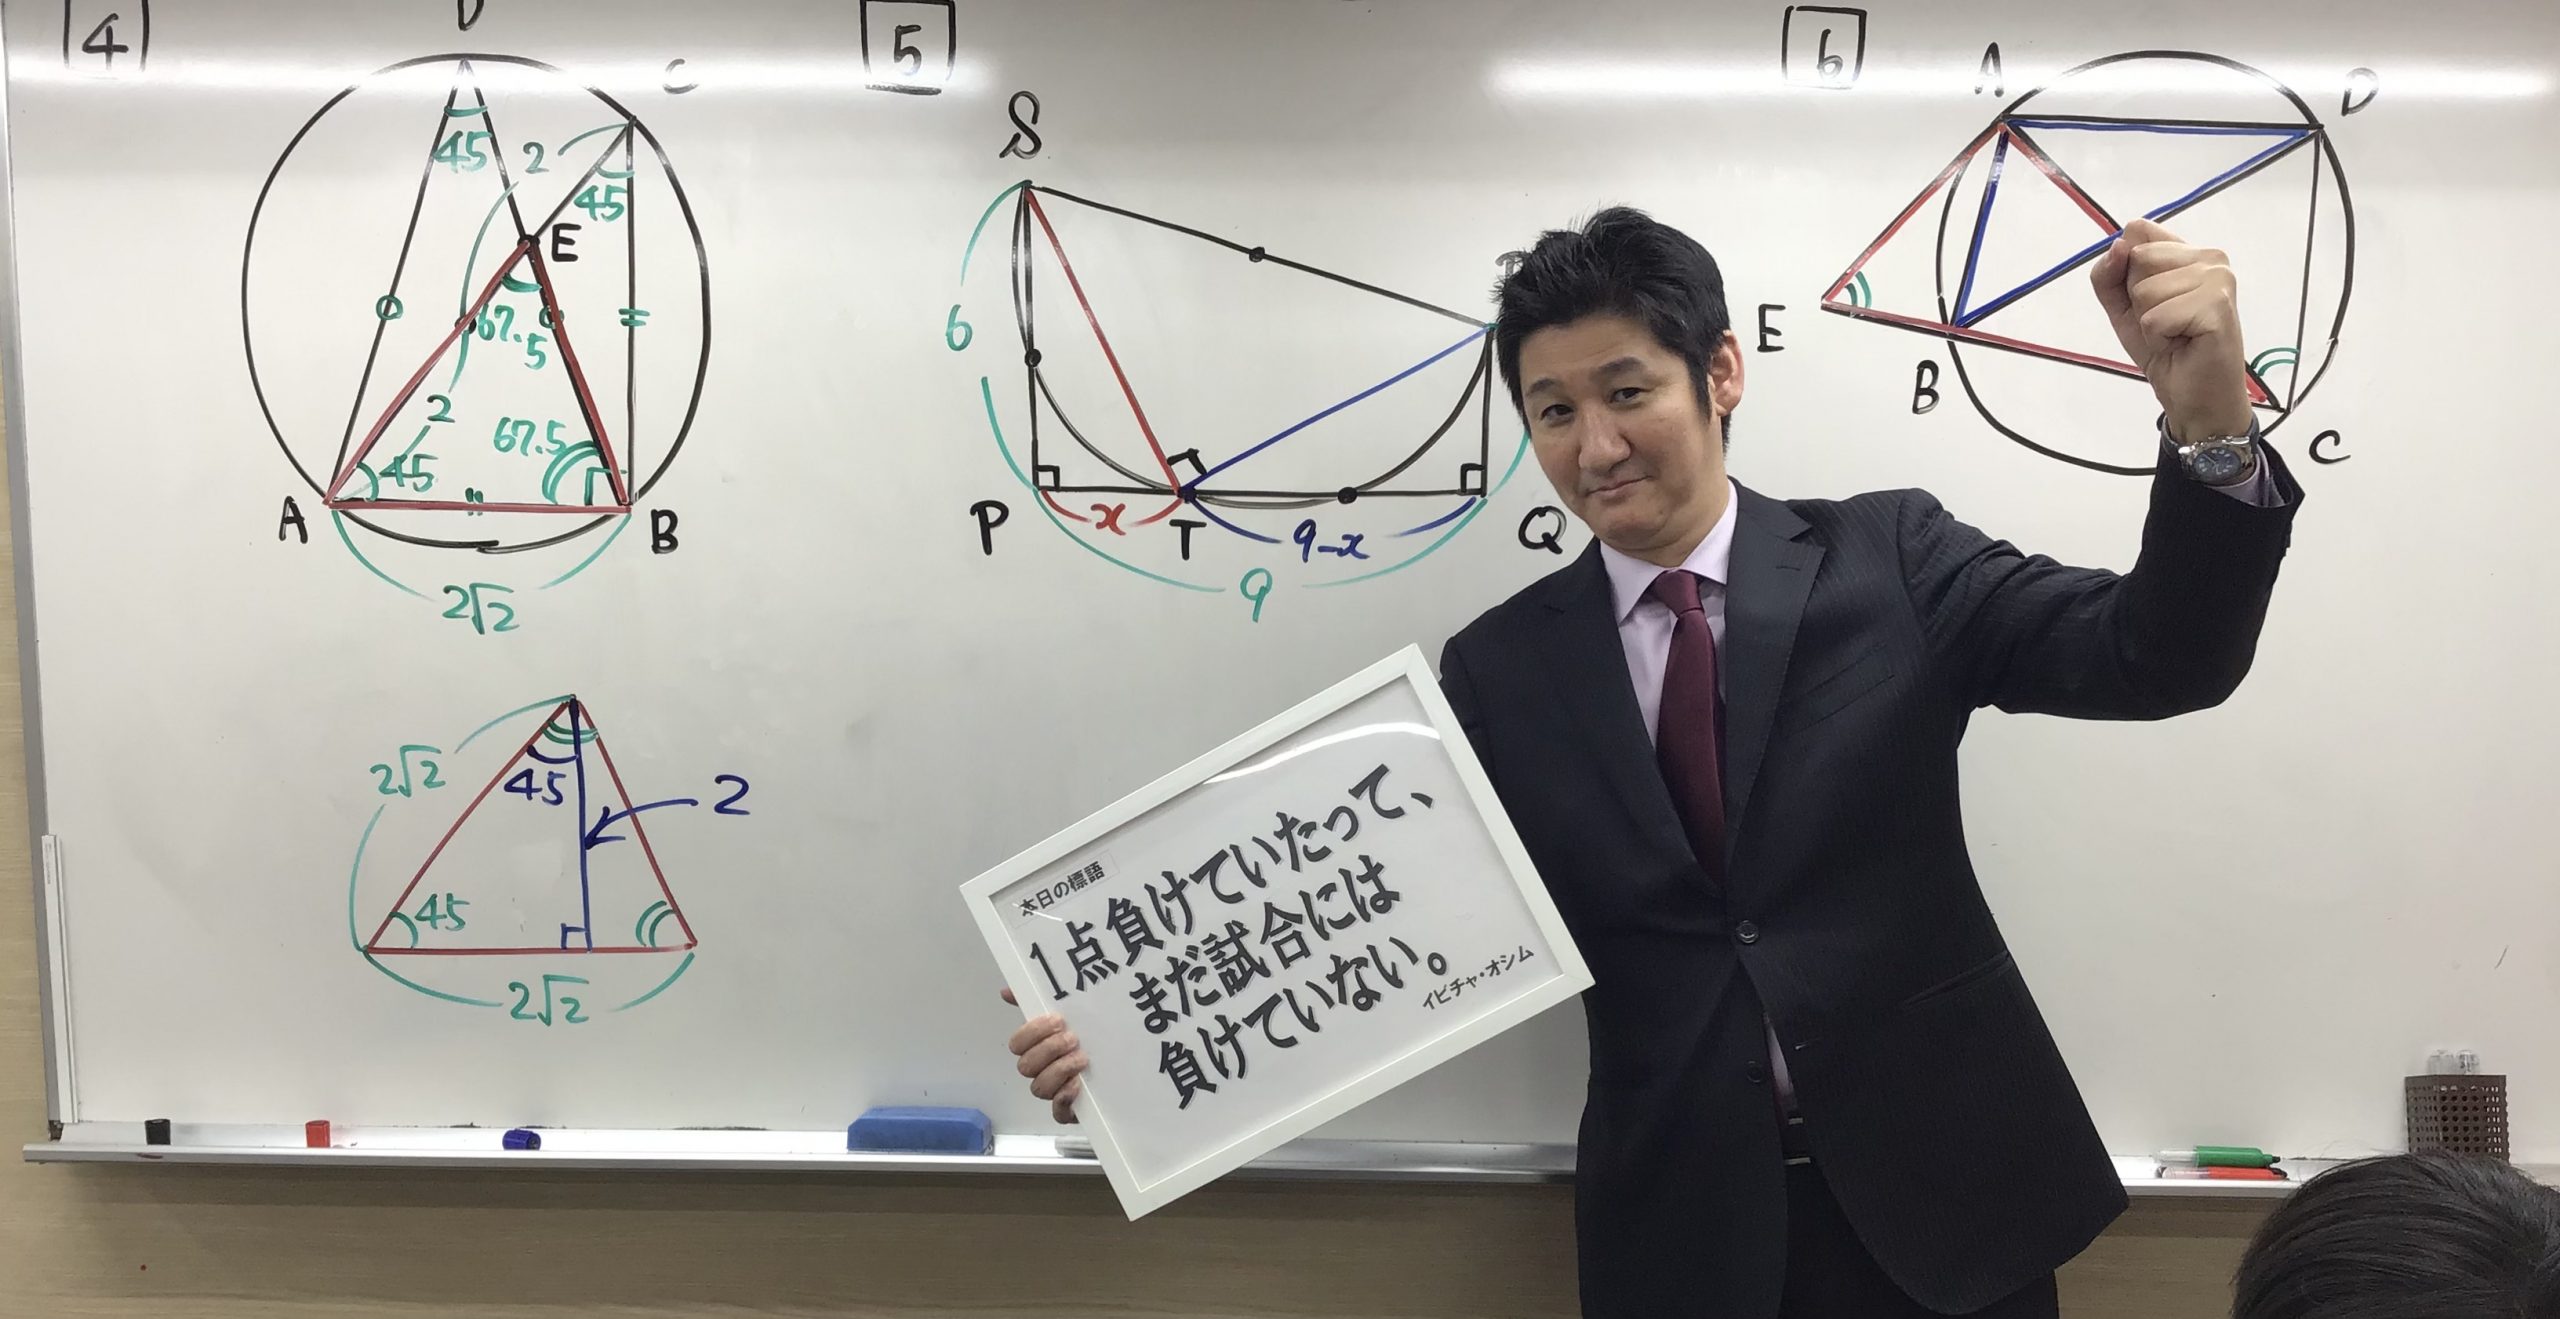 4
D
C
45
2
45
E
67.5
2
45
67.5
A
B
2√2
2√2
45
2
45
2√2
5
S
6
P
x
T
9-x
Q
9
6
A
D
E
B
C
本日の標語
1点負けていたって、
まだ試合には
負けていない。
イビチャ・オシム